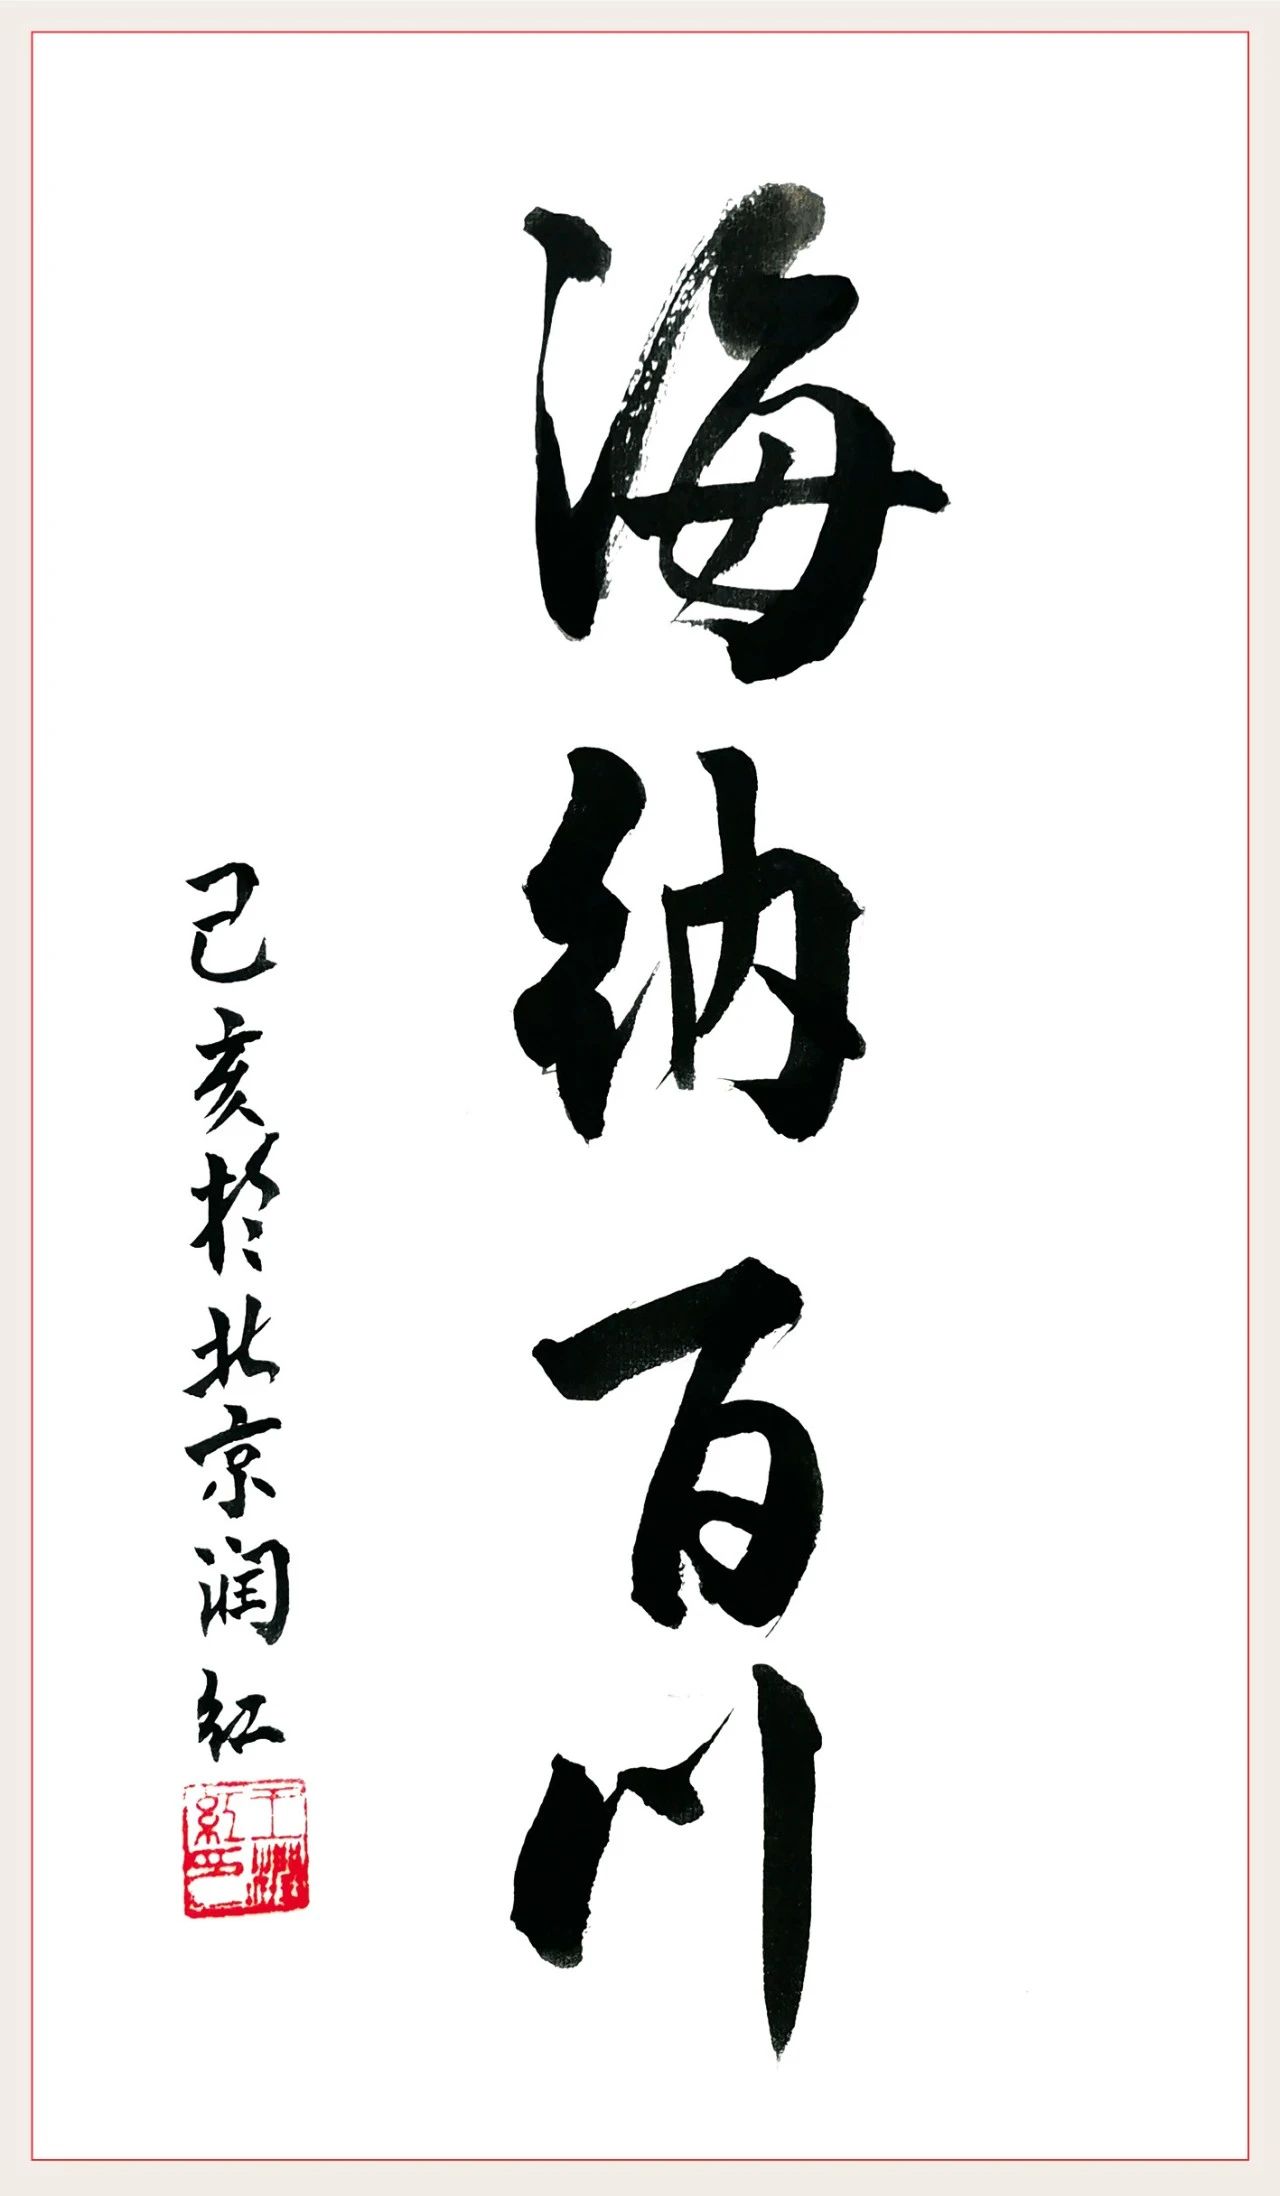 海纳百川
己亥於北京润红
王润红印